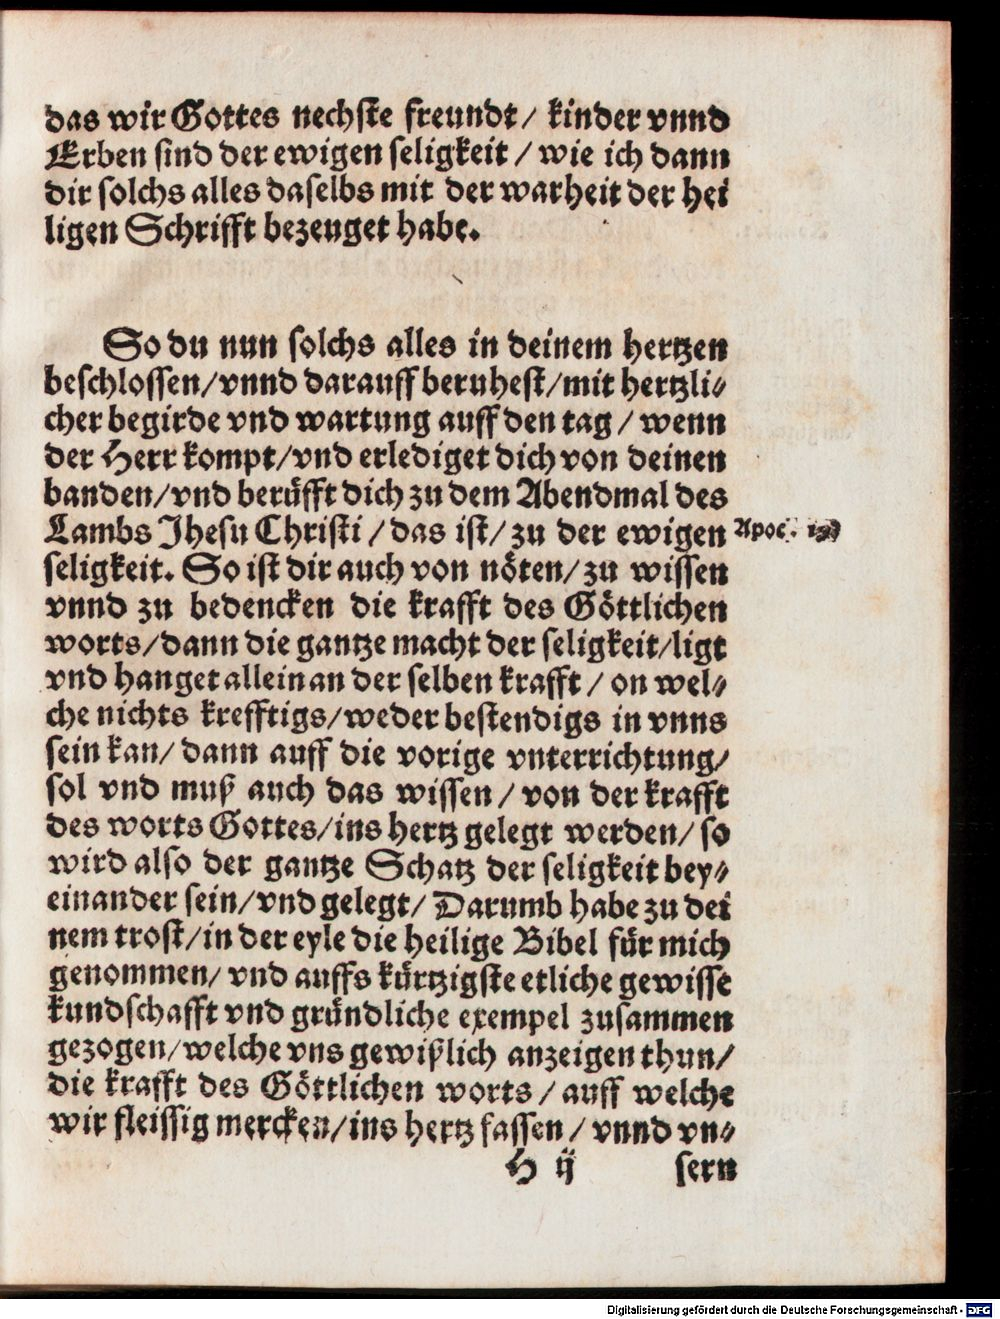 das wir Gottes nechste freundt / kinder vnnd
Erben sind der ewigen seligkeit / wie ich dann
dir solchs alles daselbs mit der warheit der hei
ligen Schrifft bezeuget habe.
So du nun solchs alles in deinem hertzen
beschlossen / vnnd darauff beruhest / mit hertzli⸗
cher begirde vnd wartung auff den tag / wenn
der Herr kompt / vnd erlediget dich von deinen
banden / vnd berüfft dich zu dem Abendmal des
Lambs Jhesu Christi / das ist / zu der ewigen
Apoc.
seligkeit. So ist dir auch von nöten / zu wissen
vnnd zu bedencken die krafft des Göttlichen
worts / dann die gantze macht der seligkeit / ligt
vnd hanget allein an der selben krafft / on wel⸗
che nichts krefftigs / weder bestendigs in vnns
sein kan / dann auff die vorige vnterrichtung /
sol vnd muß auch das wissen / von der krafft
des worts Gottes / ins hertz gelegt werden / so
wird also der gantze Schatz der seligkeit bey⸗
einander sein / vnd gelegt / Darumb habe zu dei
nem trost / in der eyle die heilige Bibel für mich
genommen / vnd auffs kürtzigste etliche gewisse
kundschafft vnd gründliche exempel zusammen
gezogen / welche vns gewißlich anzeigen thun /
die krafft des Göttlichen worts / auff welche
wir fleissig mercken / ins hertz fassen / vnnd vn⸗
H ij sern
Digitalisierung gefördert durch die Deutsche Forschungsgemeinschaft - DFG